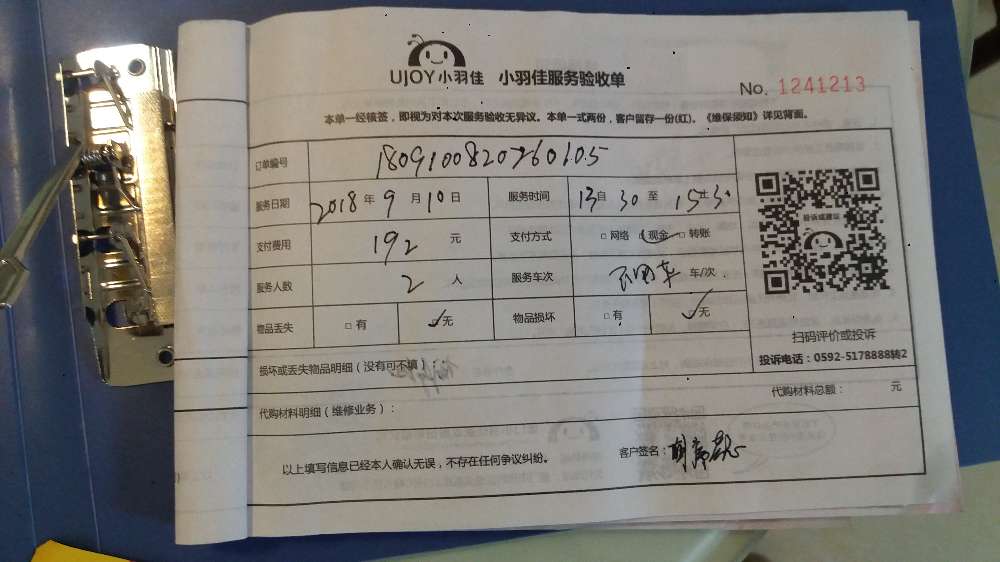 UJOY小羽佳 小羽佳服务验收单
No. 1241213
本单一经核签，即视为对本次服务验收无异议。本单一式两份，客户留存一份(红)。《维保须知》详见背面。
订单编号 180910082026010.5
服务日期 2018年 9月10日 服务时间 13自30至15止30
支付费用 192 元 支付方式 □网络 □现金 □转账
服务人数 2 人 服务车次 不用车 车/次
物品丢失 □有 □无 物品损坏 □有 □无
投诉或建议
扫码评价或投诉
投诉电话：0592-5178888转2
损坏或丢失物品明细（没有可不填）
代购材料明细（维修业务）： 代购材料总额： 元
以上填写信息已经本人确认无误，不存在任何争议纠纷。 客户签名：